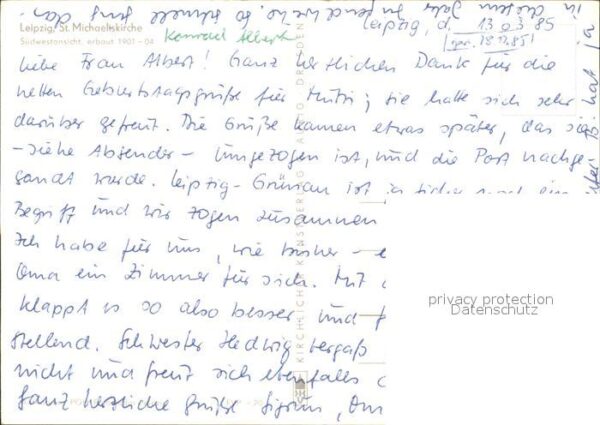 Leipzig, St. Michaeliskirche
Südwestansicht, erbaut 1901 - 04
Konrad Albert
Leipzig, d. 13.03.85
Liebe Frau Albert! Ganz herzlichen Dank für die
netten Geburtstagsgrüße für Mutti; sie hatte sich sehr
darüber gefreut. Die Grüße kamen etwas später, das sie
- siehe Absender - umgezogen ist, und die Post nachge-
sandt wurde. Leipzig-Grünau ist ja sicher
Begriff und wir zogen zusammen
Ich habe für uns, wie bisher -
Oma ein Zimmer für sich. Mit
klappt es so also besser und
stellend. Schwester Hedwig vergaß
nicht und freut sich ebenfalls
Ganz herzliche Grüße Sigrun,
in diesem Jahr
so schnell
KIRCHLICHER KUNSTVERLAG DRESDEN
privacy protection
Datenschutz